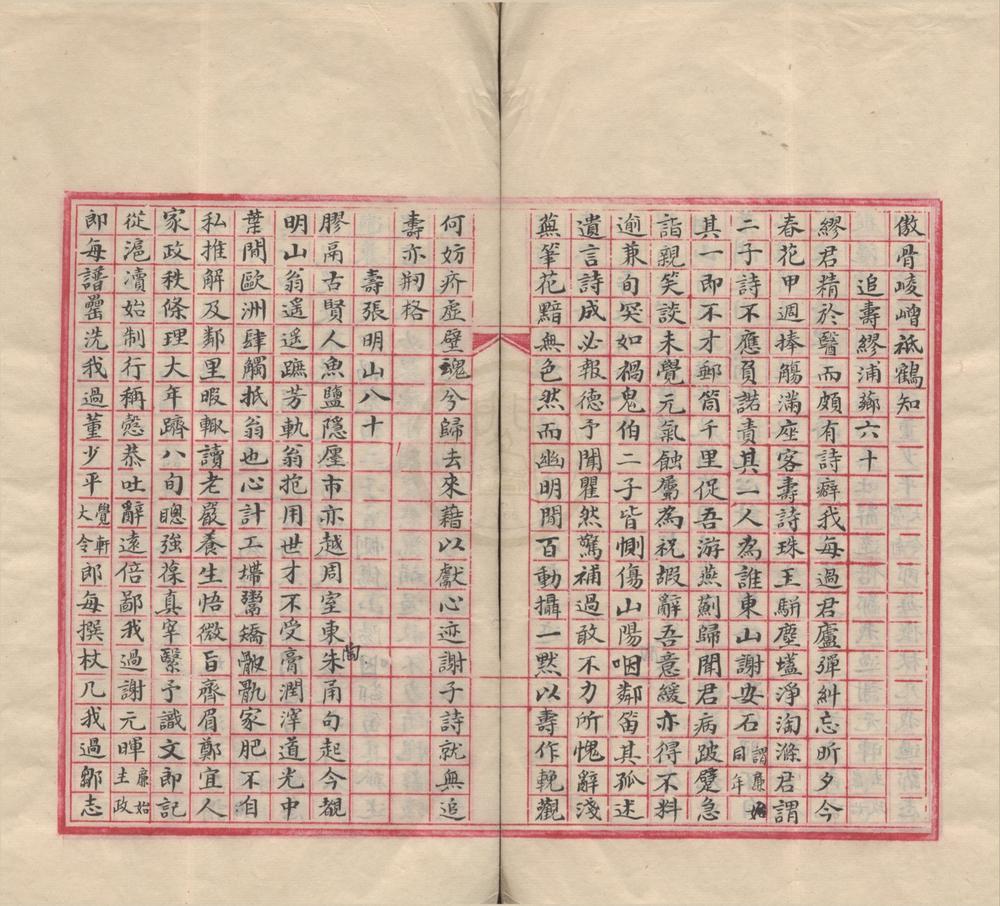 傲骨崚嶒祇鶴知
追壽繆浦蓀六十
繆君精於醫而頗有詩癖我每過君廬彈糾忘昕夕今
春花甲週捧觴滿座客壽詩珠玉駢塵壒淨淘滌君謂
二子詩不應負諾責其二人為誰東山謝安石謂廉始同年
其一即不才郵筒千里促吾游燕薊歸聞君病跛躄急
詣親笑談未覺元氣蝕屬為祝嘏辭吾意緩亦得不料
逾兼旬哭如禍鬼伯二子皆惻傷山陽咽鄰笛其孤述
遺言詩成必報德予聞瞿然驚補過敢不力所愧辭淺
蕪筆花黯無色然而幽明閒百動攝一默以壽作輓觀
何妨疥虛壁魂兮歸去來藉以獻心迹謝子詩就無追
壽亦剏格
壽張明山八十
膠鬲古賢人魚鹽隱廛市亦越周室東朱陶甬句起今覩
明山翁遥遥蹠芳軌翁抱用世才不受膏潤滓道光中
葉閒歐洲肆觸抵翁也心計工墆鬻矯骫骩家肥不自
私推解及鄰里暇輒讀老嚴養生悟微旨齊眉鄭宜人
家政秩條理大年躋八旬聰強葆真宰繄予識文郎記
從滬瀆始制行稱愨恭吐辭遠倍鄙我過謝元暉廉始主政
即每譜罍洗我過董少平覺軒大令郎每撰杖几我過鄒志